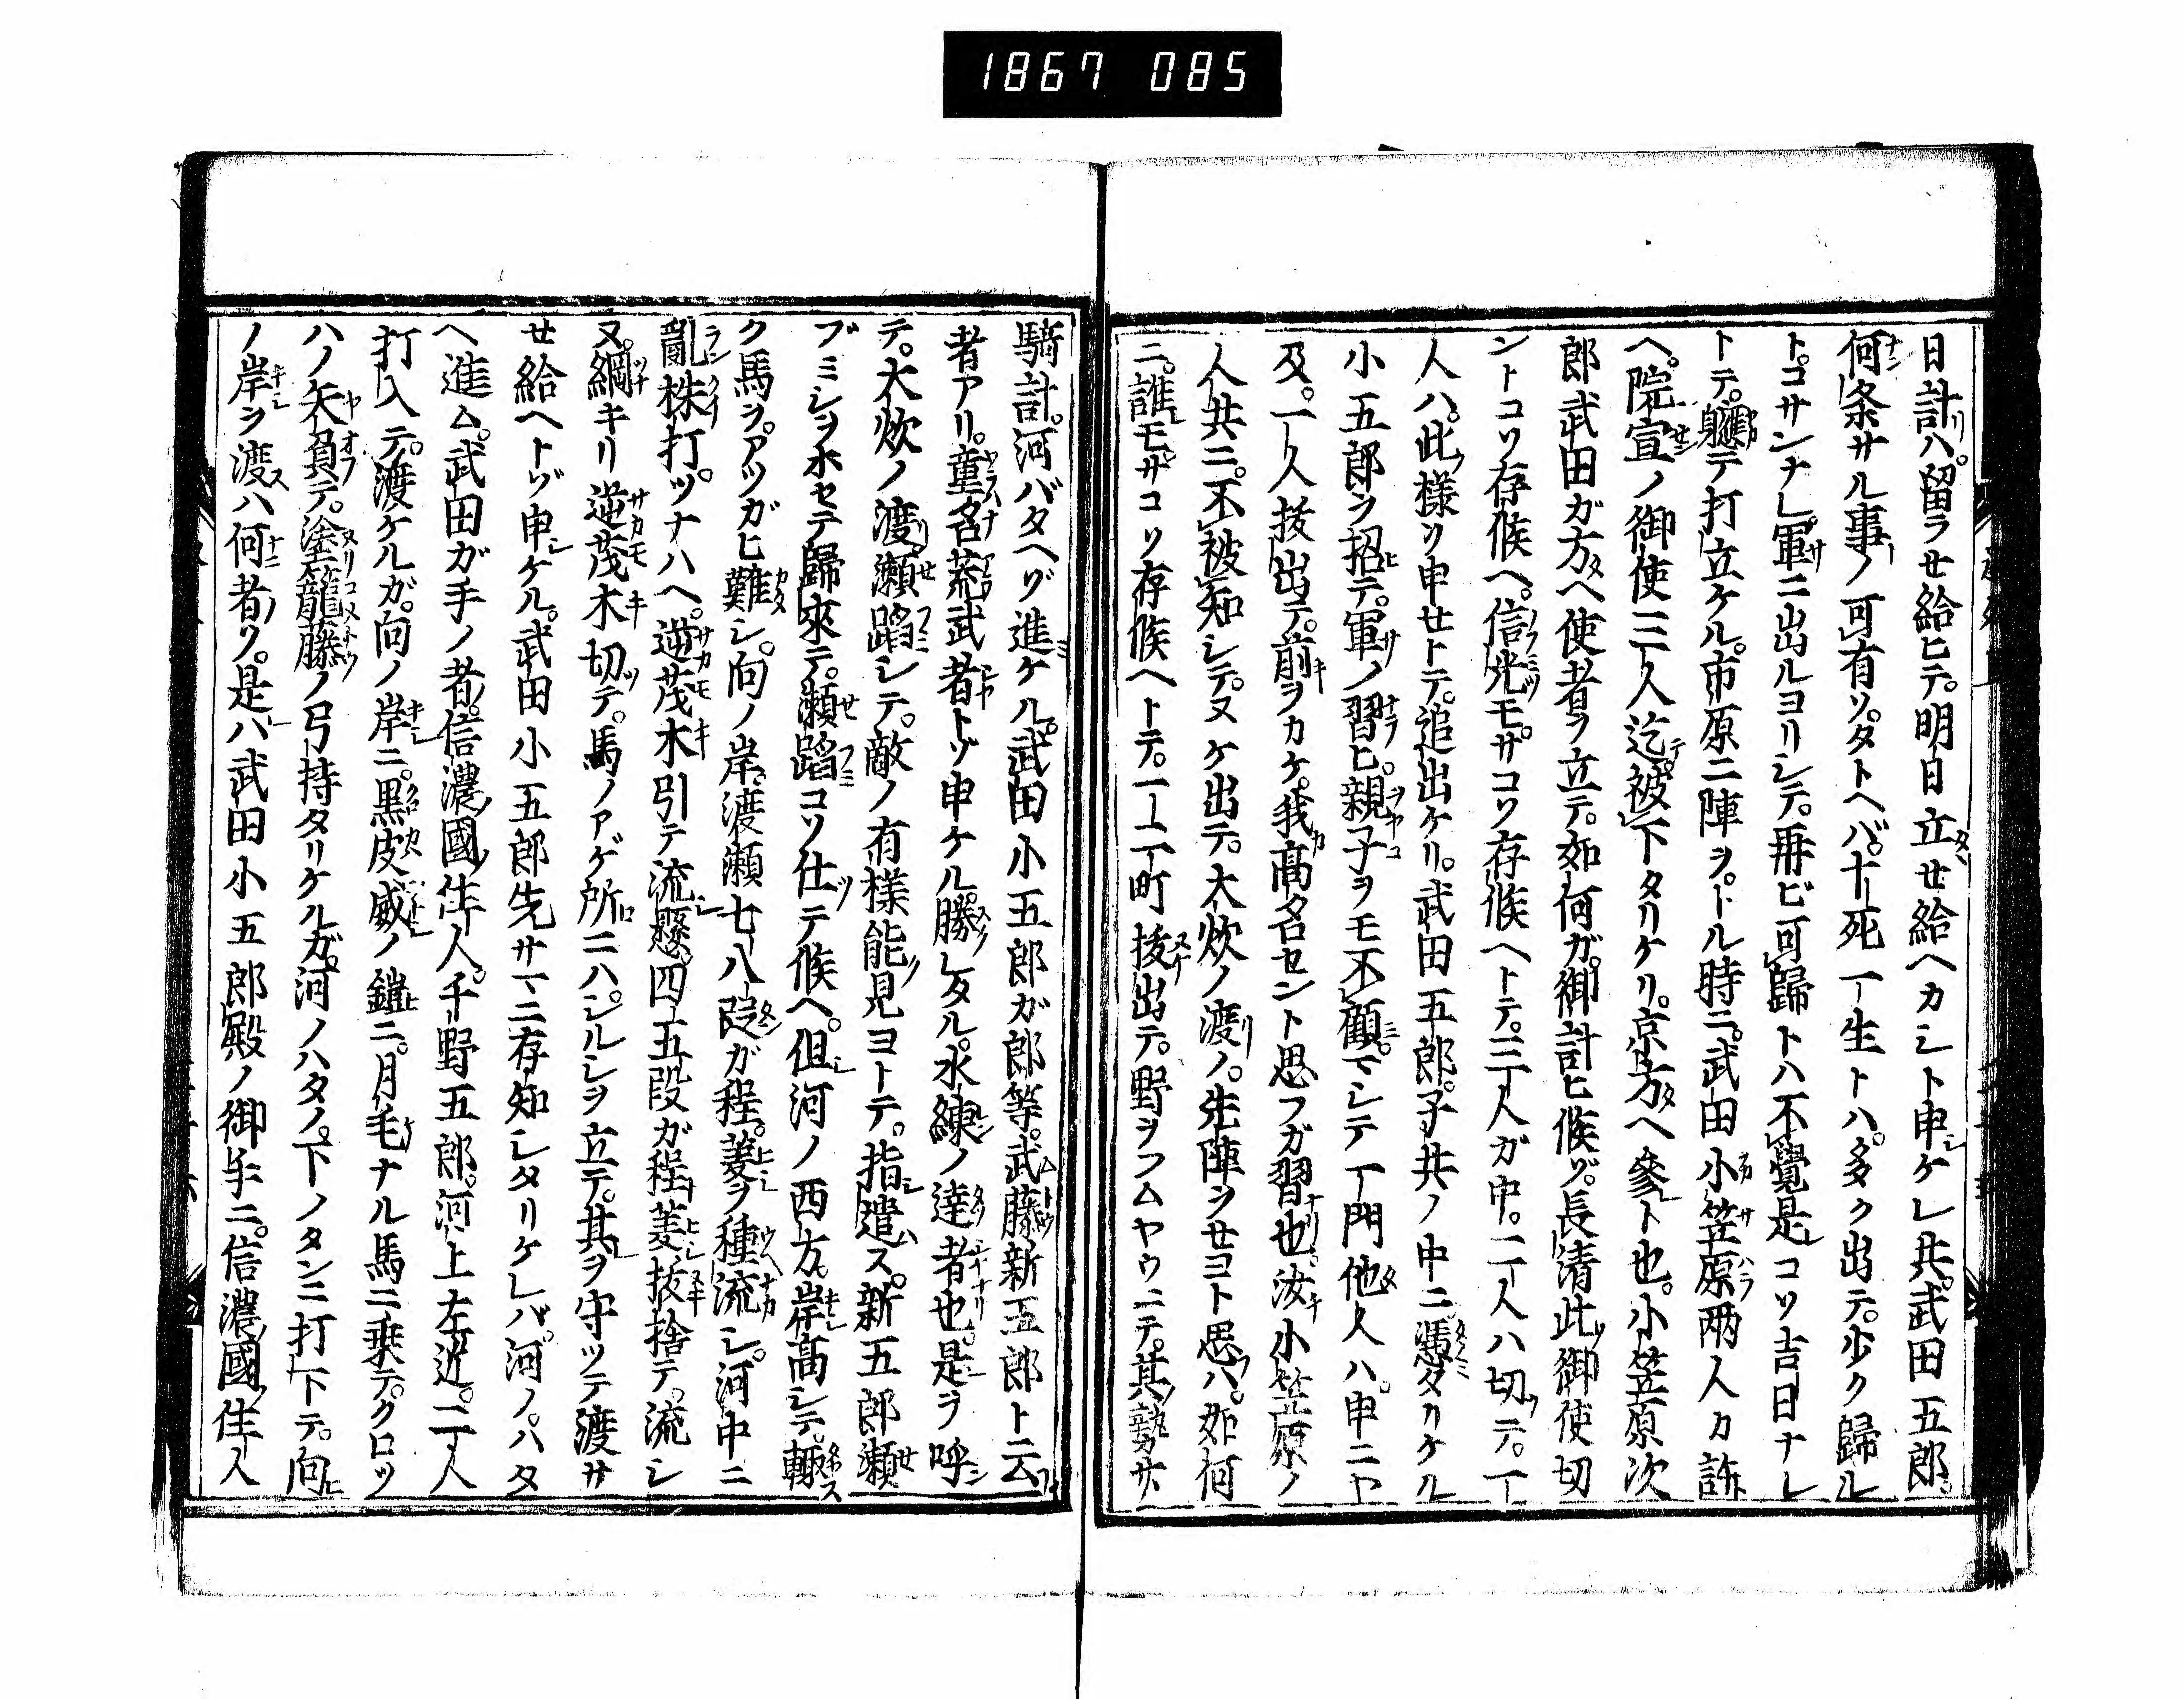 1867 085
日計ハ。留ラセ給ヒテ。明日立セ給ヘカシト申ケレ共。武田五郎。
何条サル事ノ可有ソ。タトヘバ。十死一生トハ。多ク出テ。少ク歸ル
ト。コサンナレ。軍ニ出ルヨリシテ。再ビ可歸トハ不覺。是コソ吉日ナレ
トテ。軈テ打立ケル。市原ニ陣ヲ。トル時ニ。武田小笠原両人カ許
ヘ。院宣ノ御使三人迄被下タリケリ。京方ヘ參ト也。小笠原次
郎武田ガ方ヘ使者ヲ立テ。如何ガ。御計ヒ候ゾ。長清此御使切
ントコソ存候ヘ。信光モ。サコソ存候ヘトテ。三人ガ中。二人ハ切テ。一
人ハ。此樣ヲ申セトテ。追出ケリ。武田五郎。子共ノ中ニ。憑タリケル
小五郎ヲ招テ。軍ノ習ヒ。親子ヲモ不顧。マシテ一門他人ハ。申ニヤ
及。一人抜出テ。前ヲカケ。我高名セント思フガ習也。汝小笠原ノ
人共ニ。不被知シテ。ヌケ出テ。大炊ノ渡ノ。先陣ヲセヨト思ハ。如何
ニ。誰モサコソ存候ヘトテ。一二町抜出テ。野ヲフムヤウニテ。其勢廿
騎計。河バタヘゾ進ケル。武田小五郎ガ郎等。武藤新五郎ト云
者アリ。童名荒武者トゾ申ケル。勝レタル。水練ノ達者也。是ヲ呼
テ。大炊ノ渡瀬蹈シテ。敵ノ有樣能見ヨトテ。指遣ス。新五郎瀬
ブミシヲホセテ歸來テ。瀬蹈コソ仕テ候ヘ。但河ノ西方岸高シテ。輙
ク馬ヲ。アツガヒ難シ。向ノ岸。渡瀬七八段ガ程。菱ヲ種流シ。河中ニ
亂株打。ツナハヘ。逆茂木引テ流懸。四五段ガ程菱抜捨テ。流シ
ヌ。綱キリ逆茂木切テ。馬ノアゲ所ニハ。シルシヲ立テ。其ヲ守ツテ渡サ
セ給ヘトゾ申ケル。武田小五郎先サマニ存知シタリケレバ。河ノ。ハタ
ヘ進ム。武田ガ手ノ者。信濃國住人。千野五郎。河上左近。二人
打入テ。渡ケルガ。向ノ岸ニ。黒皮威ノ鎧ニ。月毛ナル馬ニ乗テ。クロツ
ハノ矢負テ。塗籠藤ノ弓持タリケルガ。河ノハタノ。下ノタンニ打下テ。向
ノ岸ヲ渡ハ何者ソ。是ハ武田小五郎殿ノ御手ニ。信濃國住人